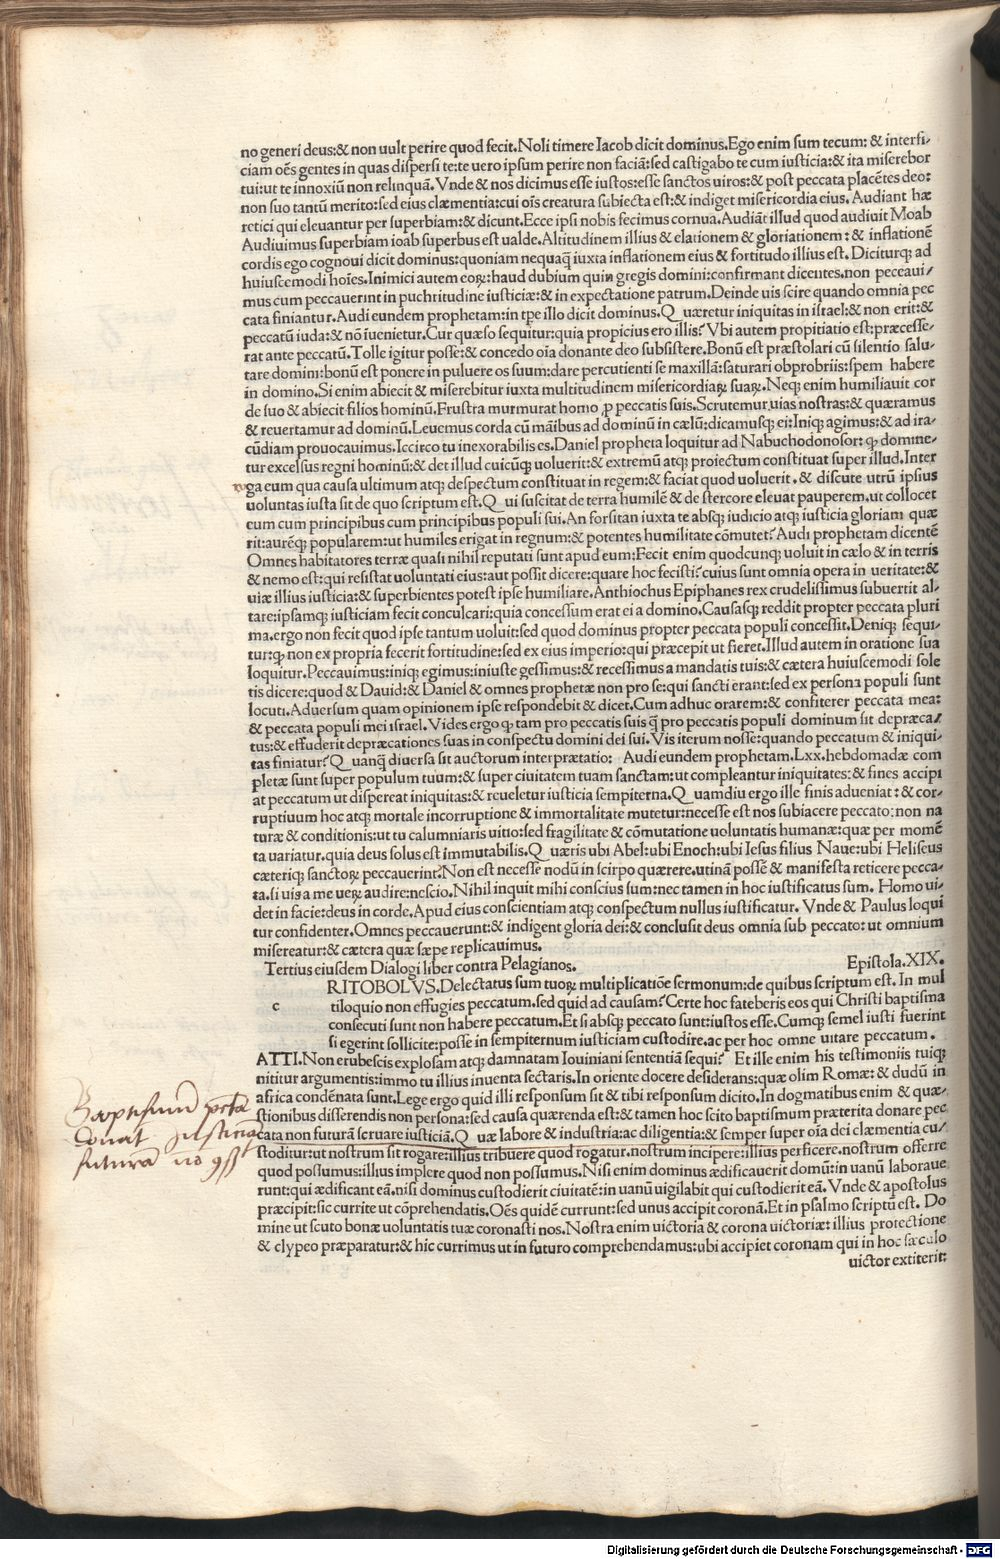 no generi deus:& non uult perire quod fecit.Noli timere Iacob dicit dominus.Ego enim sum tecum: & interfi/
ciam oēs gentes in quas dispersi te:te uero ipsum perire non faciā:sed castigabo te cum iusticia:& ita miserebor
tui:ut te innoxiū non relinquā.Vnde & nos dicimus esse iustos:esse sanctos uiros:& post peccata placētes deo:
non suo tantū merito:sed eius clæmentia:cui oīs creatura subiecta est:& indiget misericordia eius.Audiant hæ
retici qui eleuantur per superbiam:& dicunt.Ecce ipsi nobis fecimus cornua.Audiāt illud quod audiuit Moab
Audiuimus superbiam ioab superbus est ualde.Altitudinem illius & elationem & gloriationem: & inflationē
cordis ego cognoui dicit dominus:quoniam nequaꝗ̄ iuxta inflationem eius & fortitudo illius est.Diciturqꝫ ad
huiuscemodi hoīes.Inimici autem eoꝝ:haud dubium quin gregis domini:confirmant dicentes.non peccaui/
mus cum peccauerint in puchritudine iusticiæ:& in expectatione patrum.Deinde uis scire quando omnia pec
cata finiantur.Audi eundem prophetam:in tpe illo dicit dominus.Quæretur iniquitas in israel:& non erit:&
peccatū iuda:& nō īuenietur.Cur quæso sequitur:quia propicius ero illis?Vbi autem propitiatio est:præcesse/
rat ante peccatū.Tolle igitur posse:& concedo oīa donante deo subsistere.Bonū est præstolari cū silentio salu/
tare domini:bonū est ponere in puluere os suum:dare percutienti se maxillā:saturari obprobriis:spem habere
in domino.Si enim abiecit & miserebitur iuxta multitudinem misericordiaꝝ suaꝝ.Neqꝫ enim humiliauit cor
de suo & abiecit filios hominū.Frustra murmurat homo ꝓ peccatis suis.Scrutemur uias nostras:& quæramus
& reuertamur ad dominū.Leuemus corda cū māibus ad dominū in cælū:dicamusqꝫ ei:Iniqꝫ agimus:& ad ira/
cūdiam prouocauimus.Iccirco tu inexorabilis es.Daniel propheta loquitur ad Nabuchodonosor: ꝙ domine/
tur excelsus regni hominū:& det illud cuicūqꝫ uoluerit:& extremū atqꝫ proiectum constituat super illud.Inter
roga eum qua causa ultimum atqꝫ despectum constituat in regem:& faciat quod uoluerit.& discute utrū ipsius
uoluntas iusta sit de quo scriptum est.Qui suscitat de terra humilē & de stercore eleuat pauperem.ut collocet
eum cum principibus cum principibus populi sui.An forsitan iuxta te absqꝫ iudicio atqꝫ iusticia gloriam quæ
rit:aurēqꝫ popularem:ut humiles erigat in regnum:& potentes humilitate cōmutet?Audi prophetam dicentē
Omnes habitatores terræ quasi nihil reputati sunt apud eum:Fecit enim quodcunqꝫ uoluit in cælo & in terris
& nemo est:qui resistat uoluntati eius:aut possit dicere:quare hoc fecisti?cuius sunt omnia opera in ueritate:&
uiæ illius iusticia:& superbientes potest ipse humiliare.Anthiochus Epiphanes rex crudelissimus subuertit al/
tare:ipsamqꝫ iusticiam fecit conculcari:quia concessum erat ei a domino.Causasqꝫ reddit propter peccata pluri
ma.ergo non fecit quod ipse tantum uoluit:sed quod dominus propter peccata populi concessit.Deniqꝫ sequi/
tur:ꝙ non ex propria fecerit fortitudine:sed ex eius imperio:qui præcepit ut fieret.Illud autem in oratione sua
loquitur.Peccauimus:iniqꝫ egimus:iniuste gessimus:& recessimus a mandatis tuis:& cætera huiuscemodi sole
tis dicere:quod & Dauid:& Daniel & omnes prophetæ non pro se:qui sancti erant:sed ex persona populi sunt
locuti.Aduersum quam opinionem ipse respondebit & dicet.Cum adhuc orarem:& confiterer peccata mea:
& peccata populi mei israel.Vides ergo ꝙ tam pro peccatis suis ꝗ̄ pro peccatis populi dominum sit depræca/
tus:& effuderit depræcationes suas in conspectu domini dei sui.Vis iterum nosse:quando peccatum & iniqui/
tas finiatur?Quanꝗ̄ diuersa sit auctorum interprætatio: Audi eundem prophetam.Lxx.hebdomadæ com
pletæ sunt super populum tuum:& super ciuitatem tuam sanctam:ut compleantur iniquitates:& fines accipi
at peccatum ut dispereat iniquitas:& reueletur iusticia sempiterna.Quamdiu ergo ille finis adueniat:& cor/
ruptiuum hoc atqꝫ mortale incorruptione & immortalitate mutetur:necesse est nos subiacere peccato:non na
turæ & conditionis:ut tu calumniaris uitio:sed fragilitate & cōmutatione uoluntatis humanæ:quæ per momē
ta uariatur.quia deus solus est immutabilis.Quæris ubi Abel:ubi Enoch:ubi Iesus filius Naue:ubi Heliseus
cæteriqꝫ sanctoꝝ peccauerint?Non est necesse nodū in scirpo quærere.utinā possē & manifesta reticere pecca/
ta.si uis a me ueꝝ audire:nescio.Nihil inquit mihi conscius sum:nec tamen in hoc iustificatus sum. Homo ui/
det in facie:deus in corde.Apud eius conscientiam atqꝫ conspectum nullus iustificatur. Vnde & Paulus loqui
tur confidenter.Omnes peccauerunt:& indigent gloria dei:& conclusit deus omnia sub peccato: ut omnium
misereatur:& cætera quæ sæpe replicauimus.
Tertius eiusdem Dialogi liber contra Pelagianos. Epistola.XIX.
RITOBOLVS.Delectatus sum tuoꝝ multiplicatiōe sermonum:de quibus scriptum est. In mul
c tiloquio non effugies peccatum.sed quid ad causam?Certe hoc fateberis eos qui Christi baptisma
consecuti sunt non habere peccatum.Et si absqꝫ peccato sunt:iustos esse.Cumqꝫ semel iusti fuerint
si egerint sollicite:posse in sempiternum iusticiam custodire.ac per hoc omne uitare peccatum.
ATTI.Non erubescis explosam atqꝫ damnatam Iouiniani sententiā sequi? Et ille enim his testimoniis tuiqꝫ
nititur argumentis:immo tu illius inuenta sectaris.In oriente docere desiderans:quæ olim Romæ:& dudū in
africa condēnata sunt.Lege ergo quid illi responsum sit & tibi responsum dicito.In dogmatibus enim & quæ/
stionibus disserendis non persona:sed causa quærenda est:& tamen hoc scito baptismum præterita donare pec
cata non futurā seruare iusticiā.Quæ labore & industria:ac diligentia:& semper super oīa dei clæmentia cu/
stoditur:ut nostrum sit rogare:illius tribuere quod rogatur.nostrum incipere:illius perficere.nostrum offerre
quod possumus:illius implere quod non possumus.Nisi enim dominus ædificauerit domū:in uanū laboraue
runt:qui ædificant eā.nisi dominus custodierit ciuitatē:in uanū uigilabit qui custodierit eā.Vnde & apostolus
præcipit:sic currite ut cōprehendatis.Oēs quidē currunt:sed unus accipit coronā.Et in psalmo scriptū est. Do
mine ut scuto bonæ uoluntatis tuæ coronasti nos.Nostra enim uictoria & corona uictoriæ: illius protectione
& clypeo præparatur:& hic currimus ut in futuro comprehendamus:ubi accipiet coronam qui in hoc sæculo
uictor extiterit:
Donat justiciā
futurā nō
Digitalisierung gefördert durch die Deutsche Forschungsgemeinschaft - DFG